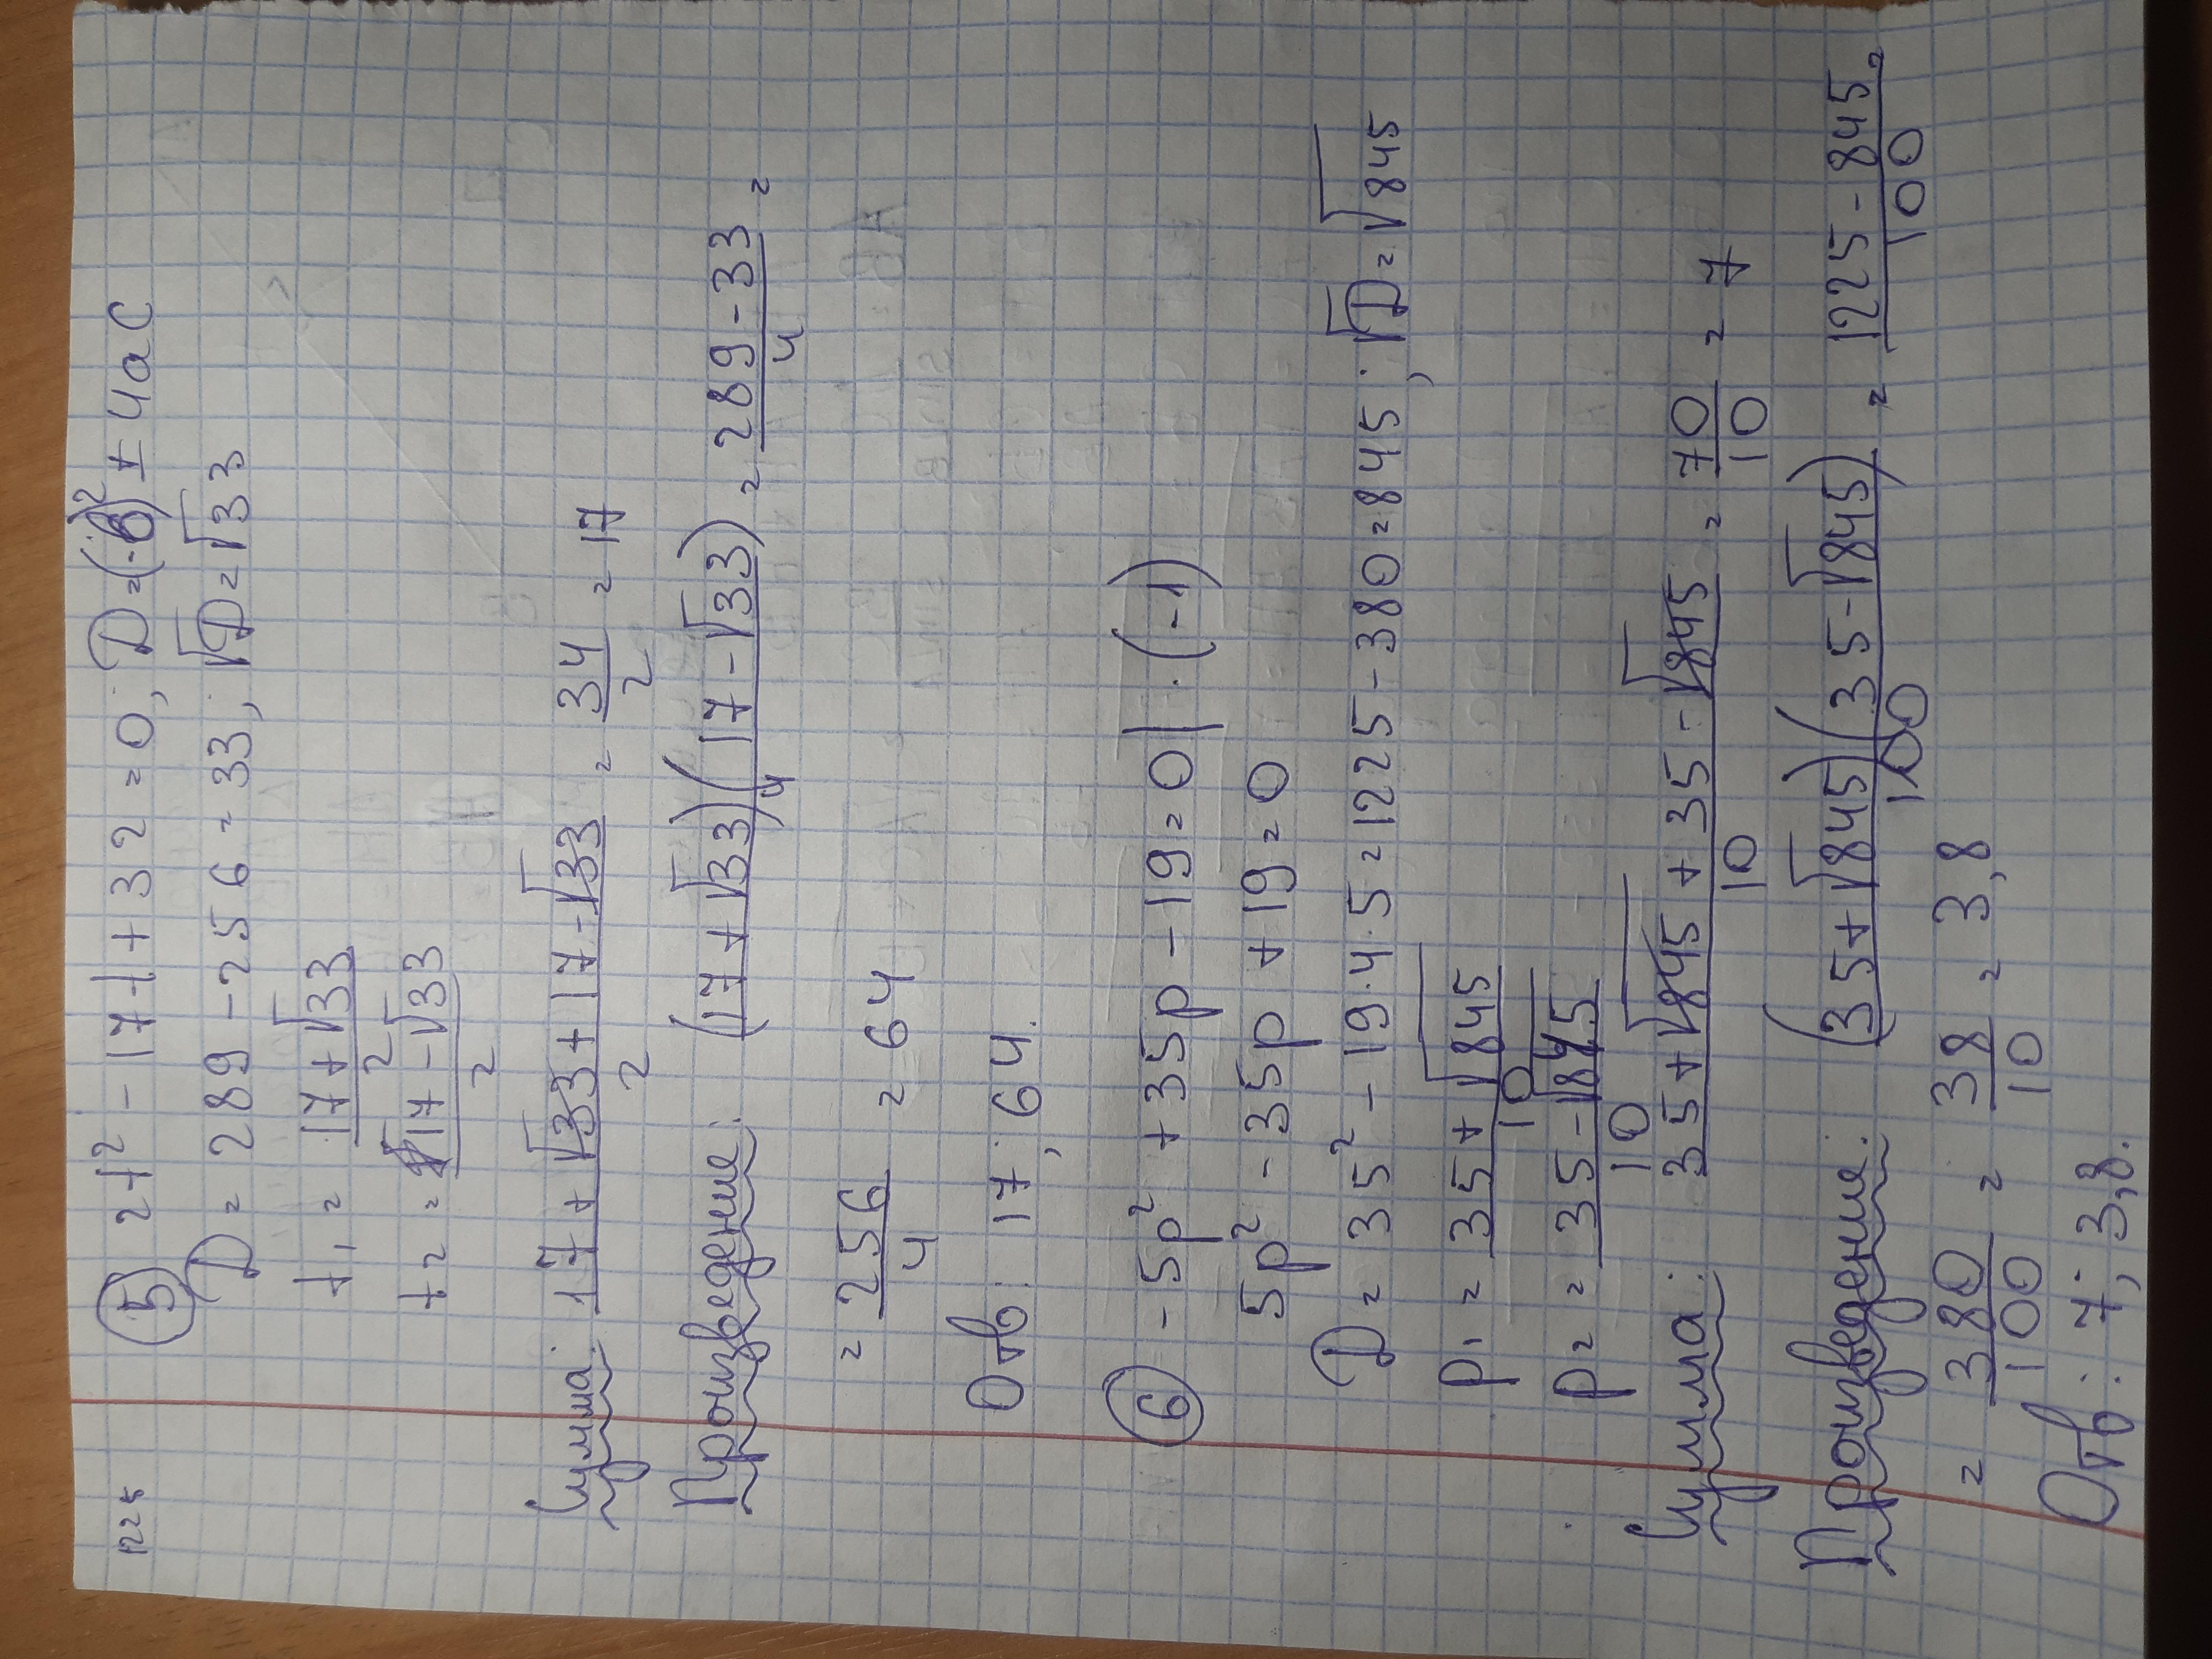 1225
⑤ 2t² - 17t + 32 = 0; D = (-b)² ± 4ac
D = 289 - 256 = 33; √D = √33
t₁ = (17 + √33)/2
t₂ = (17 - √33)/2
Сумма: (17 + √33 + 17 - √33)/2 = 34/2 = 17
Произведение: (17 + √33)(17 - √33)/4 = (289 - 33)/4 =
= 256/4 = 64
Отв: 17; 64.
⑥ -5p² + 35p - 19 = 0 | · (-1)
5p² - 35p + 19 = 0
D = 35² - 19 · 4 · 5 = 1225 - 380 = 845; √D = √845
p₁ = (35 + √845)/10
p₂ = (35 - √845)/10
Сумма: (35 + √845 + 35 - √845)/10 = 70/10 = 7
Произведение: (35 + √845)(35 - √845)/100 = (1225 - 845)/100 =
= 380/100 = 38/10 = 3,8
Отв: 7; 3,8.